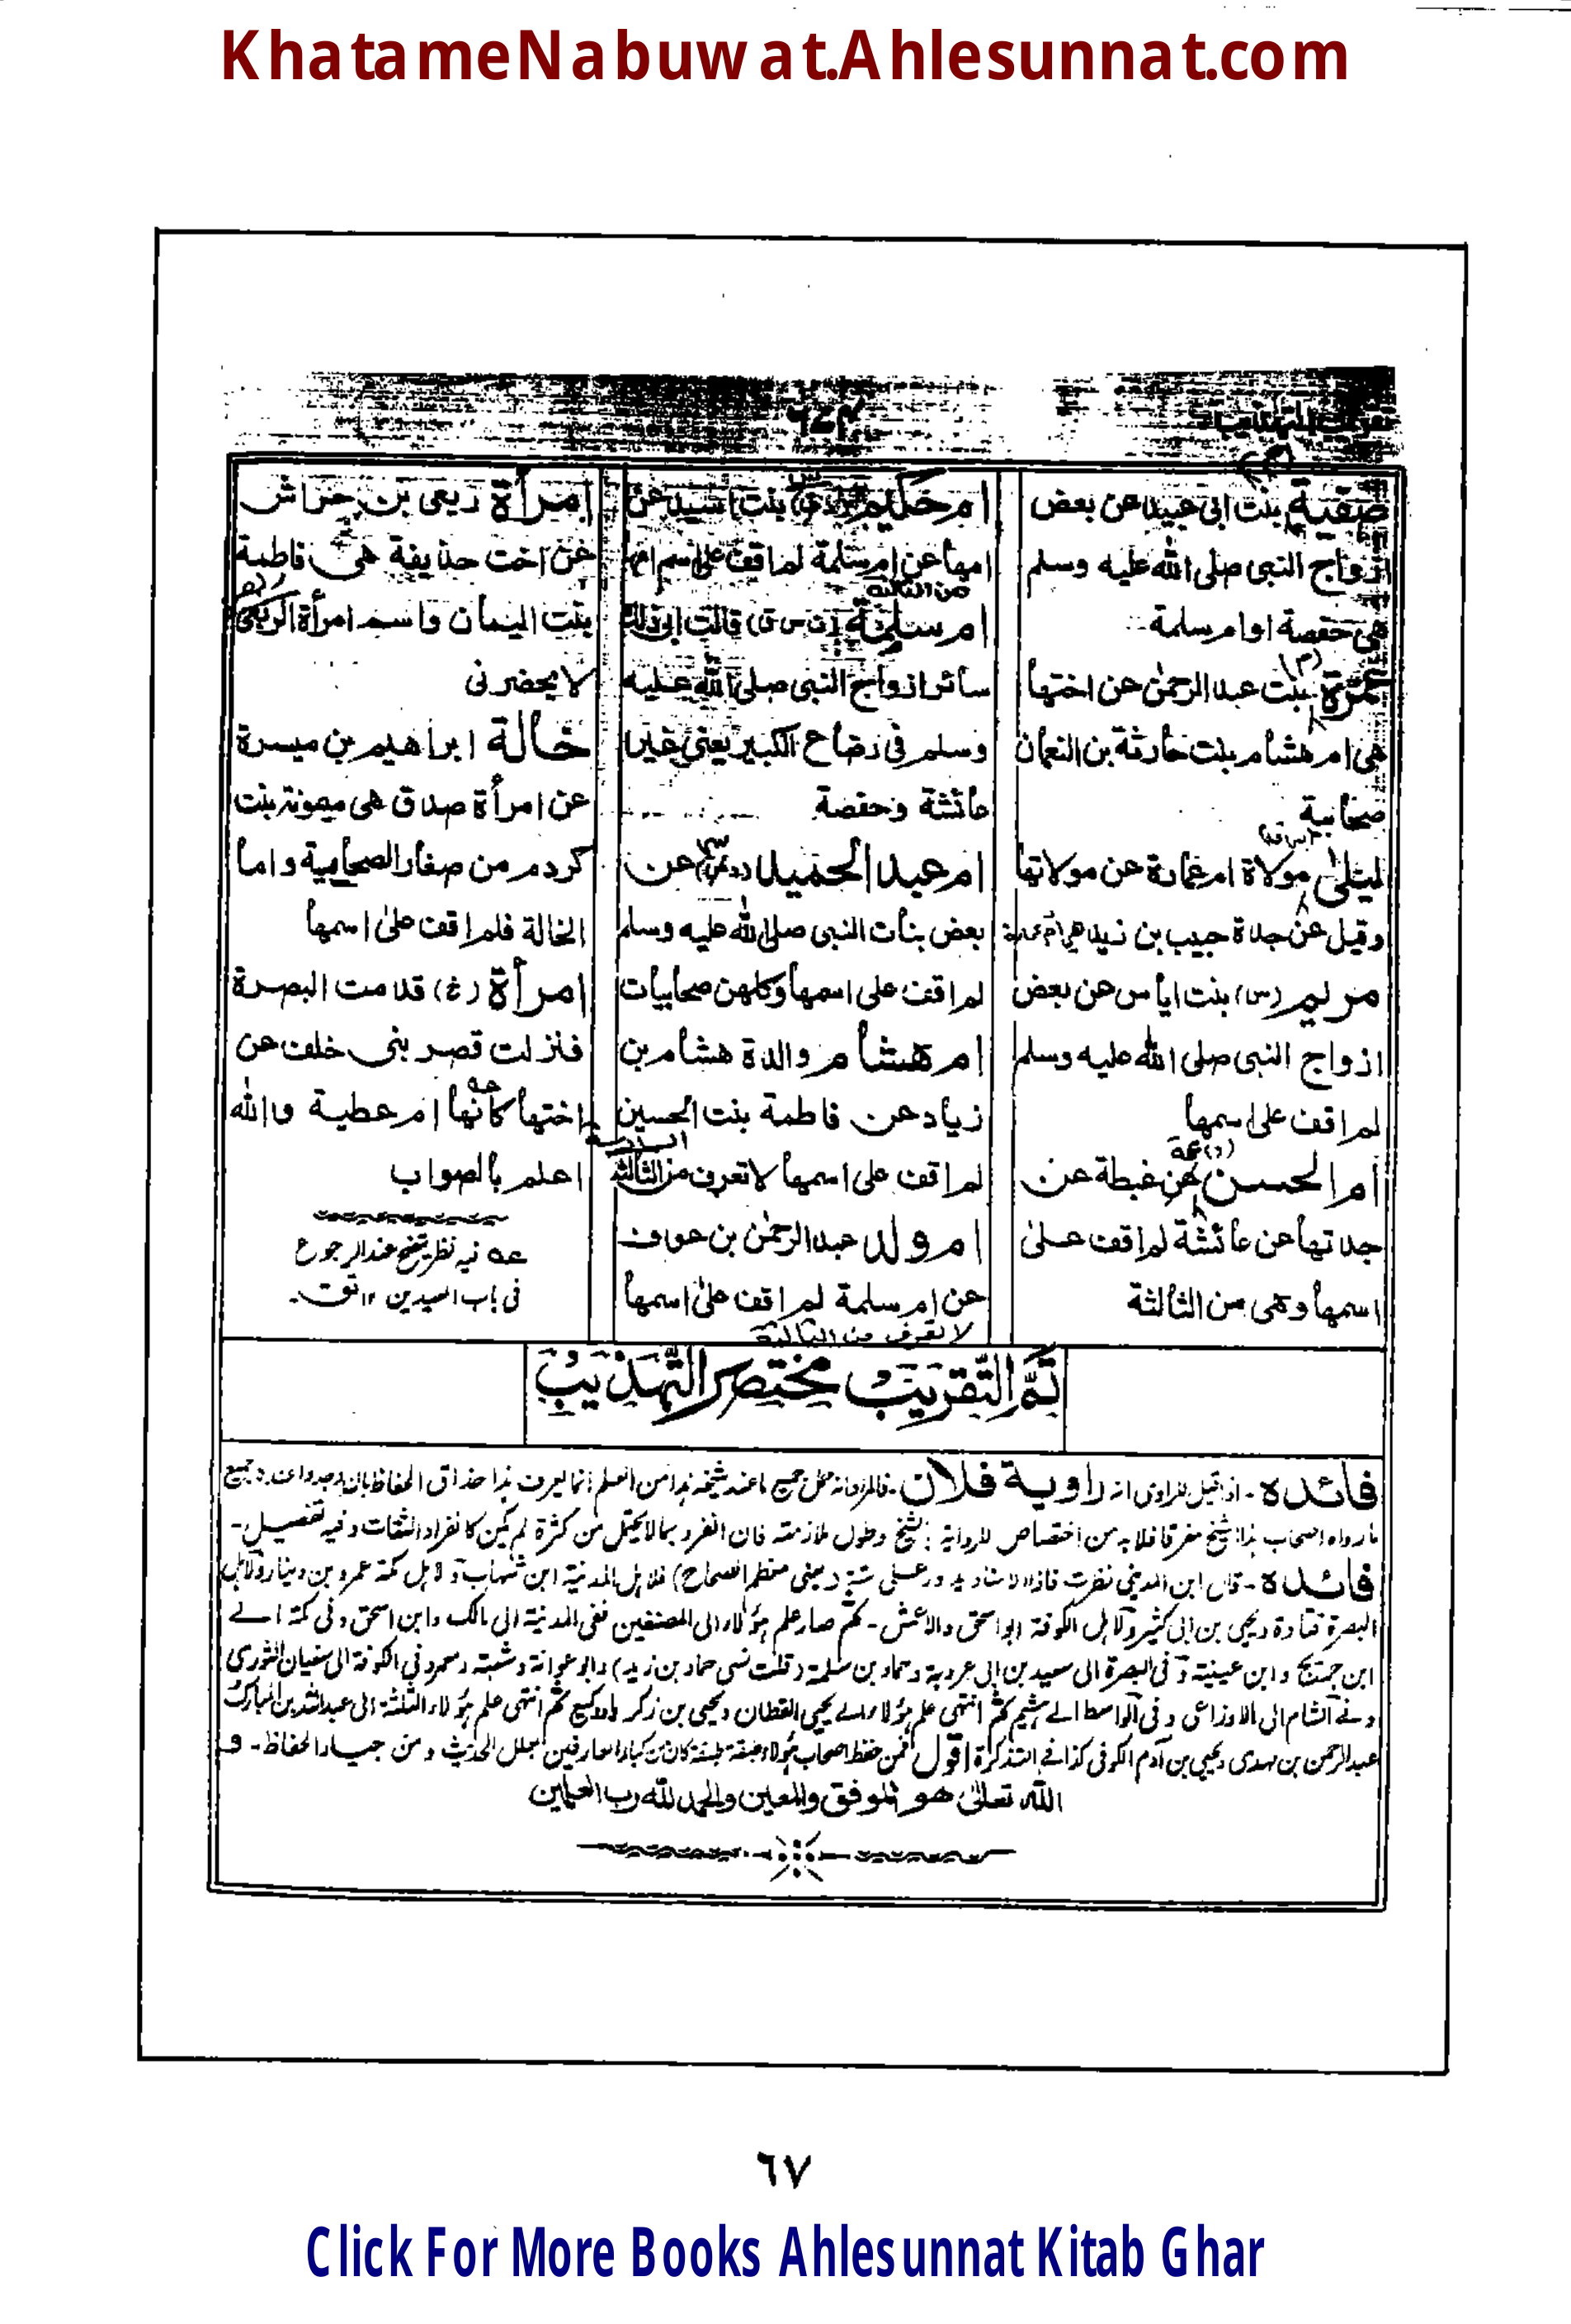 KhatameNabuwat.Ahlesunnat.com
صفية بنت ابى عبيد عن بعض
ازواج النبى صلى الله عليه وسلم
هى حفصة او ام سلمة
(م)
عمرة بنت عبد الرحمٰن عن اختها
هى ام هشام بنت حارثة بن النعمان
صحابية
ليلىٰ مولاة ام عمارة عن مولاتها
وقيل عن جدة حبيب بن زيد هى ام عمارة
مريم (س) بنت اياس عن بعض
ازواج النبى صلى الله عليه وسلم
لم اقف على اسمها
ام الحسن عن غبطة عن
جدتها عن عائشة لم اقف علىٰ
اسمها وهى من الثالثة
ام حكيم بنت اسيد عن
امها عن ام سلمة لم اقف على اسم امها
من الثالثة
ام سلمة قالت ابى ذلك
سائر ازواج النبى صلى الله عليه
وسلم فى رضاع الكبير يعنى غير
عائشة وحفصة
ام عبد الحميد عن
بعض بنات النبى صلى الله عليه وسلم
لم اقف على اسمها وكلهن صحابيات
ام هشام والدة هشام بن
زياد عن فاطمة بنت الحسين
السادسة
لم اقف على اسمها لا تعرف من الثالثة
ام ولد عبد الرحمٰن بن عوف
عن ام سلمة لم اقف علىٰ اسمها
لا تعرف من الثالثة
امرأة ربعى بن حراش
عن اخت حذيفة هى فاطمة
بنت اليمان واسم امرأة الربعى
لا يحضرنى
خالة ابراهيم بن ميسرة
عن امرأة صدق هى ميمونة بنت
كردم من صغار الصحابية واما
الخالة فلم اقف علىٰ اسمها
امرأة (خ) قدمت البصرة
فنزلت قصر بنى خلف عن
اختها كأنها ام عطية والله
اعلم بالصواب
عه فيه نظر يتضح عند الرجوع
فى باب العيدين ١٢
تم التقريب مختصر التهذيب
فائده - اذا قيل للراوى انه راوية فلان - فالمراد انه حمل جميع ما عند شيخه هذا من العلم انما يعرف هذا حذاق الحفاظ بان وجدوا عنده جميع
ما رواه اصحاب هذا الشيخ مفرقا فلا بد من اختصاص للرواية بالشيخ وطول ملازمته فان انفرد بما لا يحتمل من كثرة لم يكن كانفراد الثقات وفيه تفصيل -
فائده - قال ابن المدينى نظرت فاذا الاسناد يدور علىٰ ستة (يعنى معظم الصحاح) فلاهل المدينة ابن شهاب ولاهل مكة عمرو بن دينار ولاهل
البصرة قتادة ويحيى بن ابى كثير ولاهل الكوفة ابو اسحق والاعمش - ثم صار علم هؤلاء الى المصنفين ففى المدينة الى مالك وابن اسحق وفى مكة الى
ابن جريج وابن عيينة وفى البصرة الى سعيد بن ابى عروبة وحماد بن سلمة (قلت نسى حماد بن زيد) وابو عوانة وشعبة ومعمر وفى الكوفة الى سفيان الثورى
وفى الشام الى الاوزاعى وفى الواسط الى هشيم ثم انتهى علم هؤلاء الى يحيى القطان ويحيى بن زكريا ووكيع ثم انتهى علم هؤلاء الثلثة الى عبد الله بن المبارك
عبد الرحمن بن مهدى ويحيى بن آدم الكوفى كذا فى التذكرة اقول فمن حفظ اصحاب هؤلاء طبقة طبقة كان من كبار العارفين لعلل الحديث ومن جياد الحفاظ - و
الله تعالىٰ هو الموفق والمعين والحمد لله رب العلمين
٦٧
Click For More Books Ahlesunnat Kitab Ghar